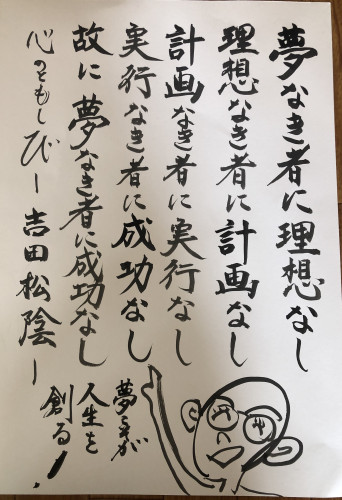 夢なき者に理想なし
理想なき者に計画なし
計画なき者に実行なし
実行なき者に成功なし
故に夢なき者に成功なし
心のともしび―吉田松陰―
夢こそが
人生を
創る!